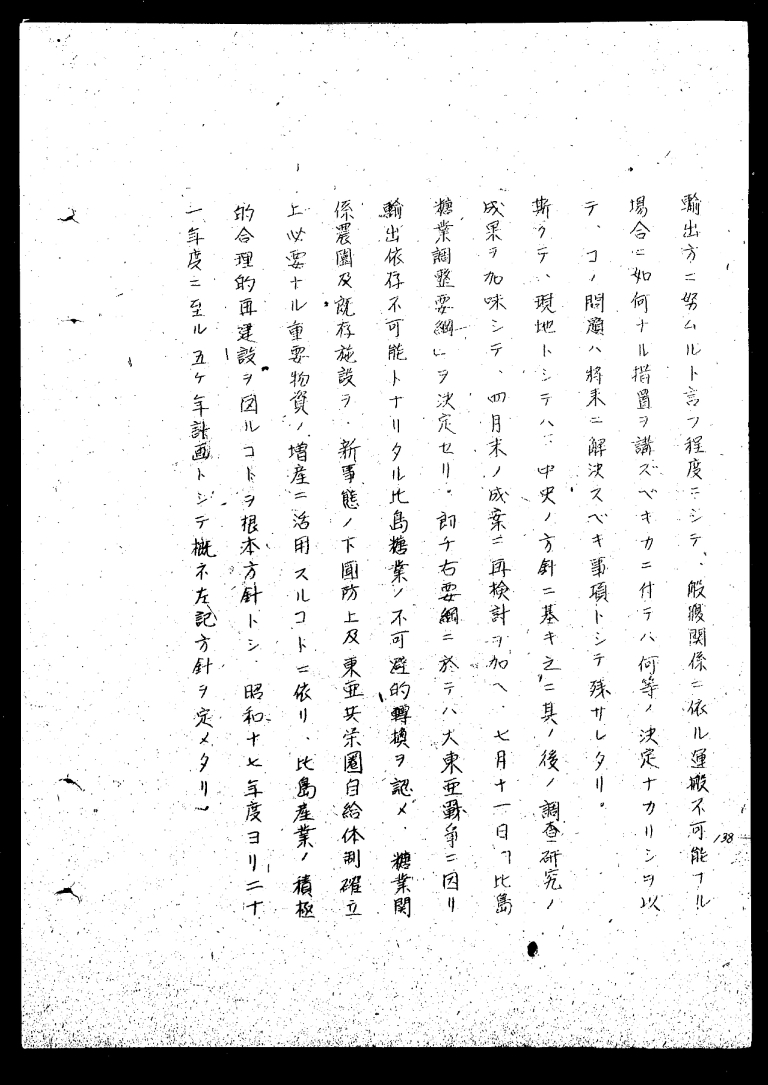 輸出方ニ努ムルト言フ程度ニシテ、船腹関係ニ依ル運搬不可能ナル
場合ニ如何ナル措置ヲ講ズベキカニ付テハ何等ノ決定ナカリシヲ以
テ、コノ問題ハ将来ニ解決スベキ事項トシテ残サレタリ。
斯クテ、現地トシテハ、中央ノ方針ニ基キ之ニ其ノ後ノ調査研究ノ
成果ヲ加味シテ、四月末ノ成案ニ再検討ヲ加ヘ、七月十一日「比島
糖業調整要綱」ヲ決定セリ。即チ右要綱ニ於テハ大東亜戦争ニ因リ
輸出依存不可能トナリタル比島糖業ノ不可避的轉換ヲ認メ、糖業関
係農園及既存施設ヲ、新事態ノ下國防上及東亜共栄圏自給体制確立
上必要ナル重要物資ノ増産ニ活用スルコトニ依リ、比島産業ノ積極
的合理的再建設ヲ図ルコトヲ根本方針トシ、昭和十七年度ヨリ二十
一年度ニ至ル五ケ年計画トシテ概ネ左記方針ヲ定メタリ
138